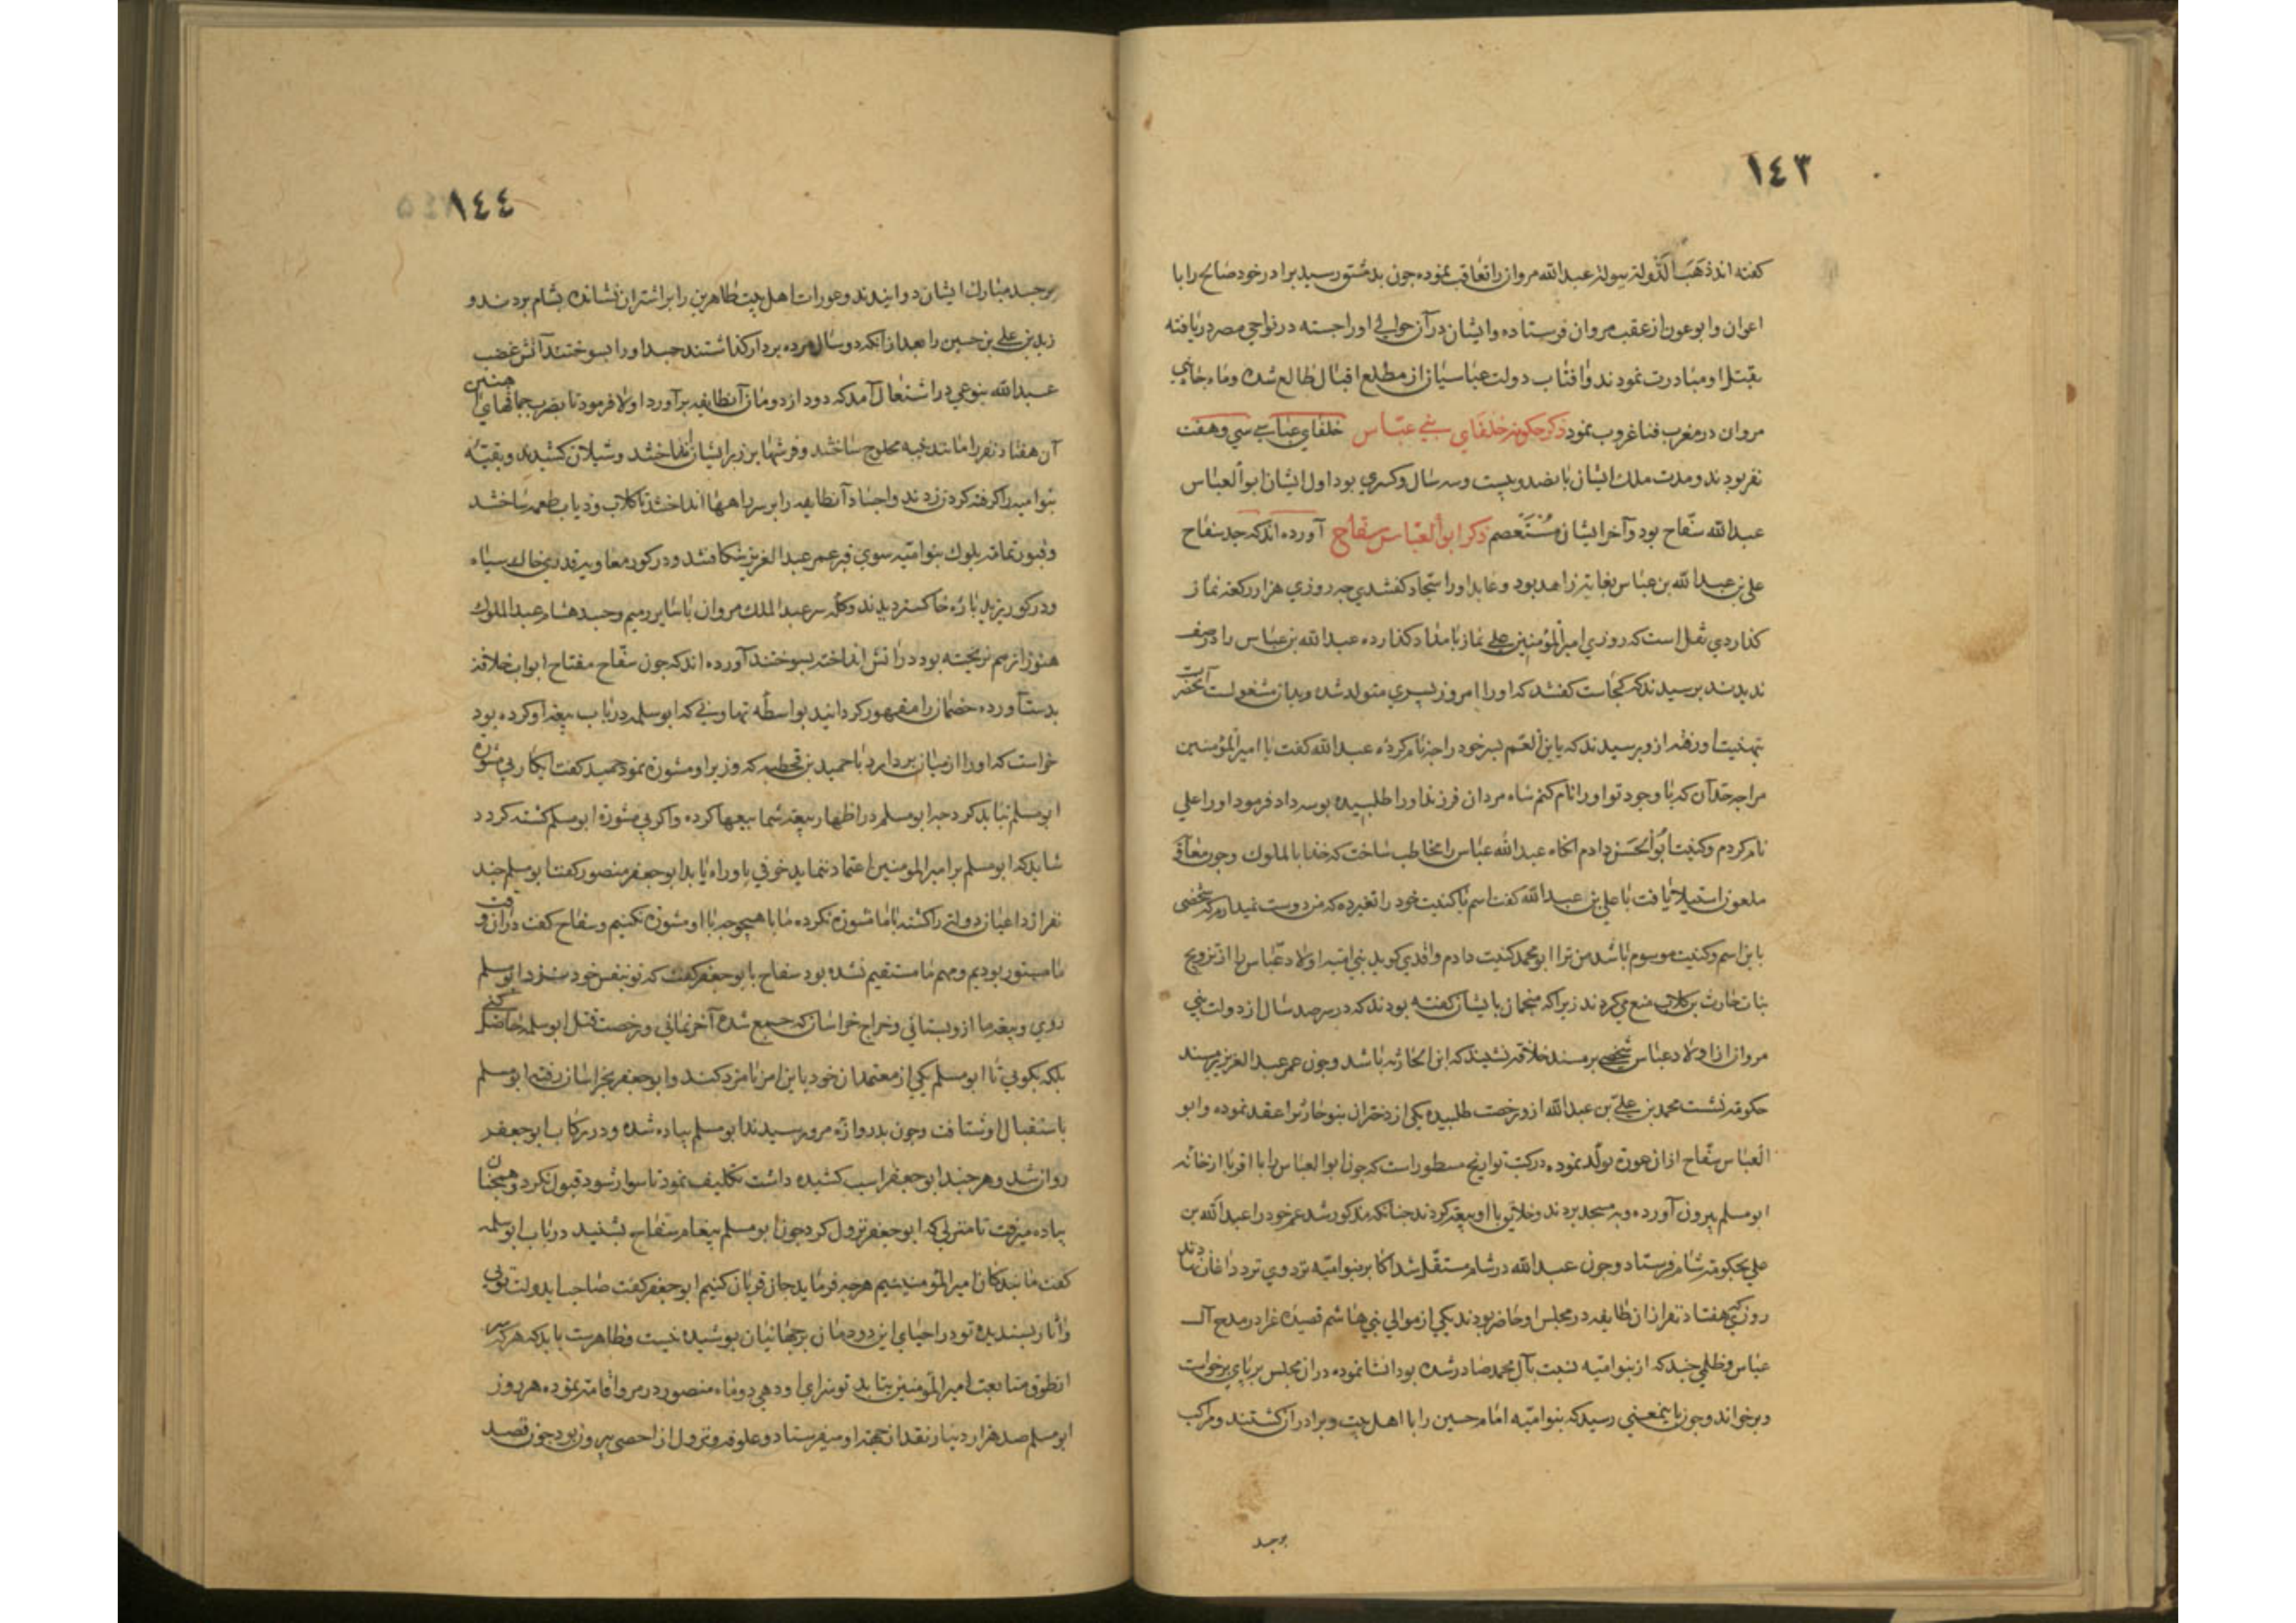 ١٤٣
کفته اند ذَهَبَ الدَّولة ببولة عبدالله مروان را تعاقب نموده جون بدمشق رسید برادر خود صالح را با
اعوان و ابوعون از عقب مروان فرستاده و ایشان در آن حوالی اورا جسته در نواحی مصر دریافته
بقتل او مبادرت نمودند و افتاب دولت عباسیان از مطلع اقبال طالع شده و ماه
مروان در مغرب فنا غروب نمود ذکر حکومة خلفای بنی عبّاس خلفای عباسی سی و هفت
نفر بودند و مدت ملک ایشان بانصد و بیست و سه سال و کسری بود اول ایشان ابوالعباس
عبدالله سفّاح بود و آخر ایشان مُسْتَعصم ذکر ابوالعبّاس سفاح آورده اند که جد سفاح
علی بن عبدالله بن عباس بغایة زاهد بود و عابد اورا سجاد کفتندی جه روزی هزار رکعة نماز
کذاردی نقل است که روزی امیرالمؤمنین علی نماز بامداد کذارده عبدالله بن عباس را در صف
ندیدند برسیدند که کجاست کفتند که اورا امروز بسری متولد شده و بدان مشغولست آنحضرت
بتهنیت او رفته ازو برسیدند که یا بن العم بسر خود را جه نام کردۀ عبدالله کفت یا امیرالمؤمنین
مرا جه حد آن که با وجود تو اورا نام کنم شاه مردان فرزند اورا طلبیده بوسه داد فرمود اورا علی
نام کردم و کنیت ابوالحسن دادم انکاه عبدالله عباس را مخاطب ساخت که خذ ابا الملوک وجون معاویه
ملعون استیلا یافت با علی بن عبدالله کفت اسم یا کنیت خود را تغیر ده که من دوست نمیدارم که شخصی
باین اسم و کنیت موسوم باشد من ترا ابومحمد کنیت دادم واقدی کوید بنی امیه اولاد عبّاس را از تزویج
بنات حارث بن کلاب منع می کردند زیرا که منجمان بایشان کفته بودند که در سر صد سال از دولت بنی
مروان از اولاد عباس شخصی بر مسند خلافة نشیند که ابن الحارثه باشد وجون عمر عبدالعزیز بر مسند
حکومة نشست محمد بن علی بن عبدالله ازو رخصت طلبیده یکی از دختران بنو حارث را عقد نموده و ابو
العباس سفّاح ازان عورة تولّد نموده در کتب تواریخ مسطور است که جون ابوالعباس را با اقربا از خانه
ابومسلم بیرون آورده و به مسجد بردند و خلایق با او بیعة کردند جنانکه مذکور شد عمر خود را عبدالله بن
علی بحکومة شام فرستاد وجون عبدالله در شام مستقلّ شد اکابر بنوامیّه نزد وی تردد اغاز نهادند
روزی هفتاد نفر ازان طایفه در مجلس او حاضر بودند یکی از موالی بنی هاشم قصیدۀ غرا در مدح آل
عباس و ظلمی جند که از بنوامیّه نسبت بآل محمد صادر شده بود انشا نموده دران مجلس بر بای برخواست
و برخواند وجون باینمعنی رسید که بنوامیّه امام حسین را با اهل بیت و برادران کشتند و مرکب
برجسد
١٤٤
برجسد مبارک ایشان دوانیدند و عورات اهل بیت طاهرین را بر اشتران نشانده بشام بردند و
زید بن علی بن حسین را بعد از انکه دو سال مرده بر دار کذاشتند جسد اورا بسوختند آتش غضب
عبدالله بنوعی در اشتعال آمد که دود از دومان آنطایفه برآورد اولا فرمود تا بضرب جماقهای جنین
آن هفتاد نفر را مانند بنبه محلوج ساختند و فرشها بر زبر ایشان انداختند و شیلان کشیدند و بقیّۀ
بنوامیه را کرفته کردن زدند و اجساد آنطایفه را بر سر راهها انداختند تا کلاب و ذیاب طعمه ساختند
و قبور تمامه ملوک بنوامیّه سوی قبر عمر عبدالعزیز بشکافتند و در کور معاویه قدری خاک سیاه
و در کور یزید باره خاکستر دیدند و کله سر عبدالملک مروان با سایر رمیم و جسد هشام عبدالملوک
هنوز از هم نریخته بود در اتش انداخته بسوختند آورده اند که جون سفّاح مفتاح ابواب خلافة
بدست آورده خصمان را مقهور کردانید بواسطۀ تهاونی که ابوسلمه در باب بیعة او کرده بود
خواست که اورا از میان بردارد با حمید بن قحطبه که وزیر او مشورة نمود حمید کفت اینکار بی مشورة
ابومسلم نباید کرد جه ابومسلم در اظهار بیعة شما سعیها کرده و اکر بی مشورة ابومسلم کشته کردد
شاید که ابومسلم بر امیرالمومنین اعتماد ننماید خوفی باو راه یابد ابوجعفر منصور کفت ابومسلم جند
نفر از داعیان دولة را کشته با ما مشورة نکرده ما با هیجوجه با او مشورة نکنیم و سفاح کفت دران وقت
ما مستور بودیم و مهم ما مستقیم نشده بود سفاح با ابوجعفر کفت که تو بنفس خود نزد ابومسلم
روی و بیعة ما ازو بستانی و خراج خراسان که جمع شده آخر نمائی و رخصت قتل ابوسلمه حاصل کنی
بلکه بکویی تا ابومسلم یکی از معتمدان خود باین امر نامزد کند و ابوجعفر بخراسان رفته ابومسلم
باستقبال او شتافت وجون بدروازۀ مرو رسیدند ابومسلم بیاده شده و در رکاب ابوجعفر
روان شد و هر جند ابوجعفر اسب کشیده داشت تکلیف نمود تا سوار شود قبول نکرد و همجنان
بیاده میرفت تا منزلی که ابوجعفر نزول کرد جون ابومسلم بیغام سفاح بشنید در باب ابوسلمه
کفت ما بندکان امیرالمؤمنینیم هرجه فرماید جان قربان کنیم ابوجعفر کفت صاحب ایدولت تویی
و اثار بسندیدۀ تو در احیای این دودمان بر جهانیان بوشیده نیست و ظاهرست باید که هرکس سر
از طوق متابعت امیرالمؤمنین بتابد تو سزای او دهی دو ماه منصور در مرو اقامة نموده هر روز
ابومسلم صد هزار دینار نقد از جهة او میفرستاد و علوفه و نزول از احصی بیرون بود جون قصد